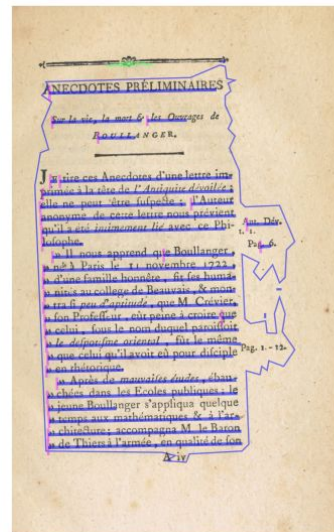 ANECDOTES PRÉLIMINAIRES
Sur la vie, la mort & les Ouvrages de
BOULLANGER.
Je tire ces Anecdotes d'une lettre im-
primée à la tête de l'Antiquité dévoilée :
elle ne peut être suspecte ; l'Auteur
anonyme de cette lettre nous prévient
qu'il a été intimement lié avec ce Phi-
losophe.
Ant. Dév.
t. 1.
Pag. 6.
» Il nous apprend que Boullanger,
» né à Paris le 11 novembre 1722,
» d'une famille honnête, fit ses huma-
» nités au college de Beauvais, & mon-
» tra si peu d'aptitude, que M. Crévier,
» son Professeur, eut peine à croire que
» celui, sous le nom duquel paroissoit
» le despotisme oriental, fût le même
» que celui qu'il avoit eû pour disciple
» en rhétorique.
Pag. 1.-12.
» Après de mauvaises études, ébau-
» chées dans les Ecoles publiques ; le
» jeune Boullanger s'appliqua quelque
» temps aux mathématiques & à l'ar-
» chitecture ; accompagna M. le Baron
» de Thiers à l'armée, en qualité de son
A iv